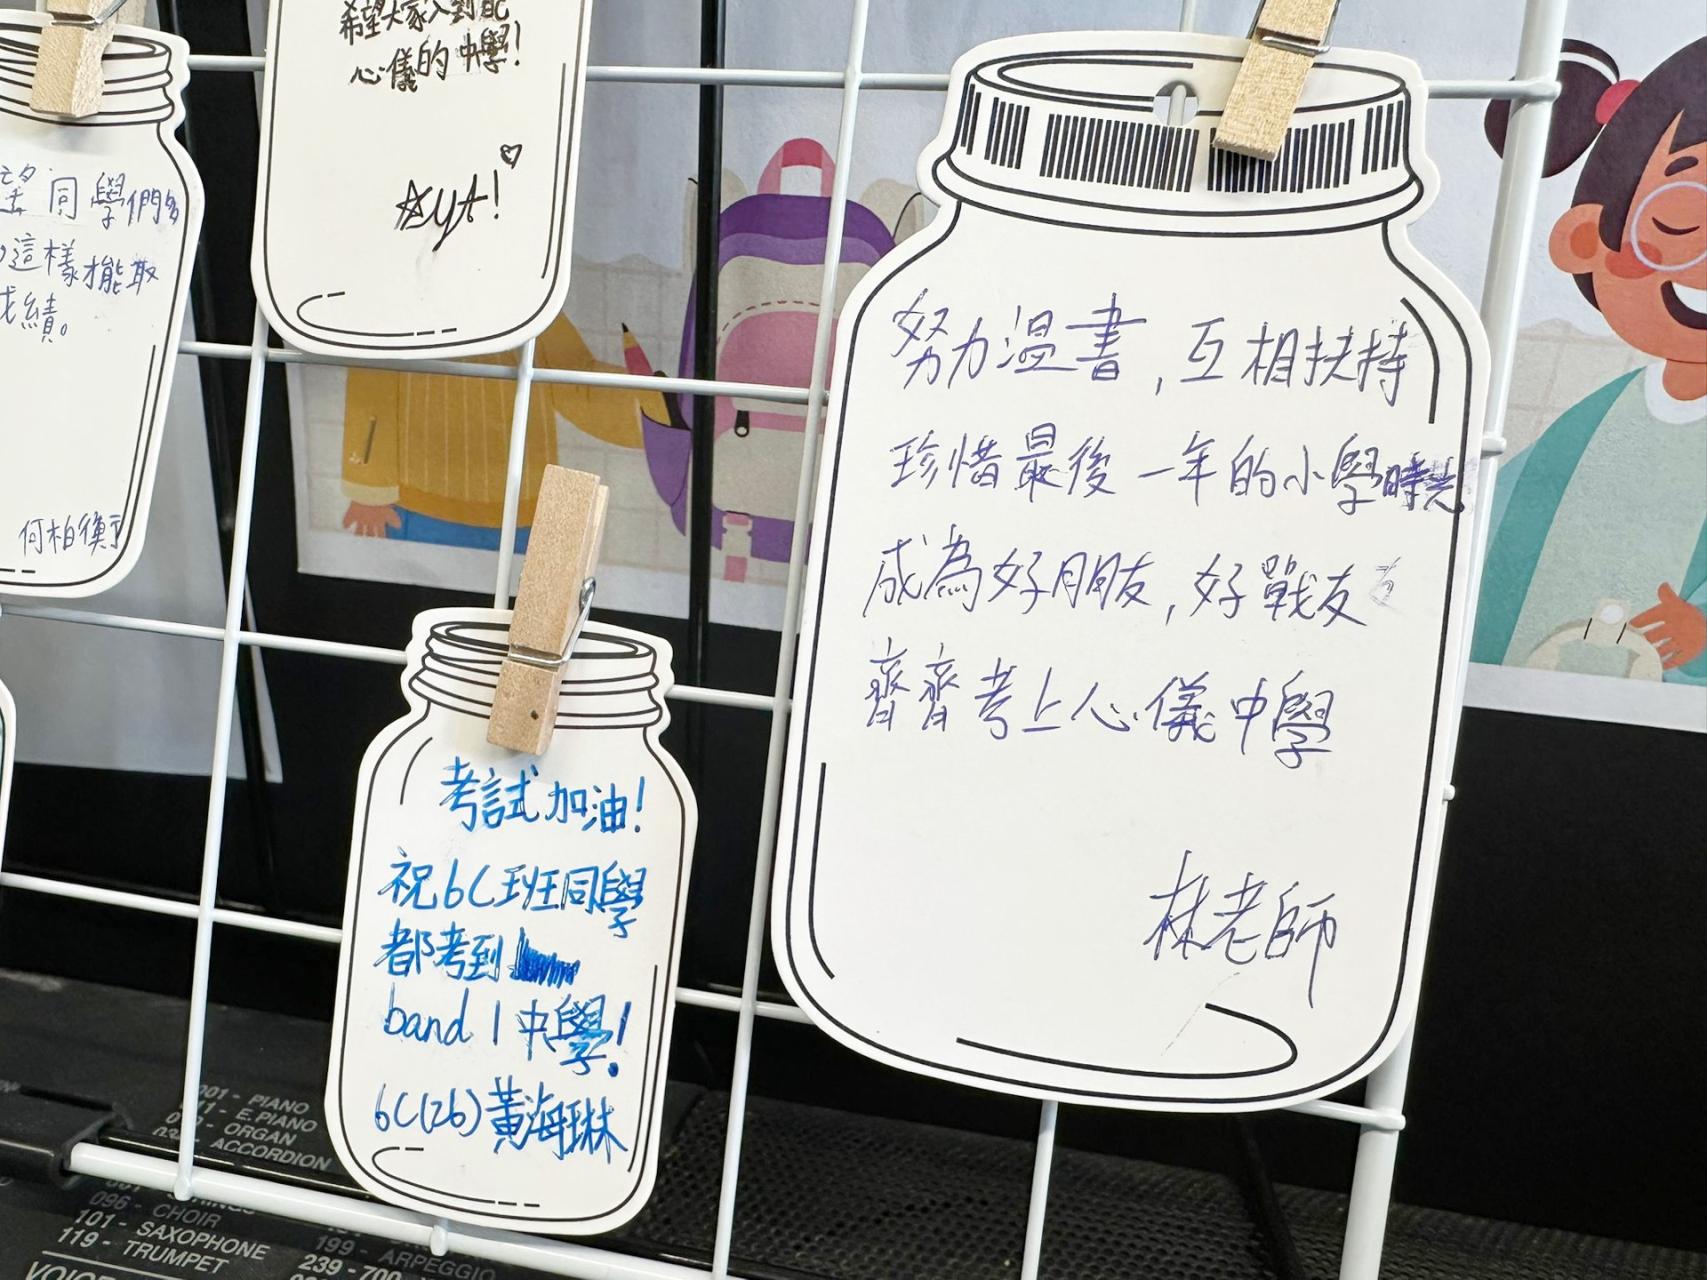 希望大家入到心
心儀的中學!
望同學們多
這樣才能取
成績。
何柏衡
努力溫書,互相扶持
珍惜最後一年的小學時光
成為好朋友,好戰友
齊齊考上心儀中學
林老師
考試加油!
祝6C班同學
都考到
band 1 中學!
6C(26)黃海琳
001 - PIANO
011 - E.PIANO
ORGAN
ACCORDION
STRINGS
096 - CHOIR
101 - SAXOPHONE
119 - TRUMPET
199 - ARPEGGIO
239 - 700
VOICE